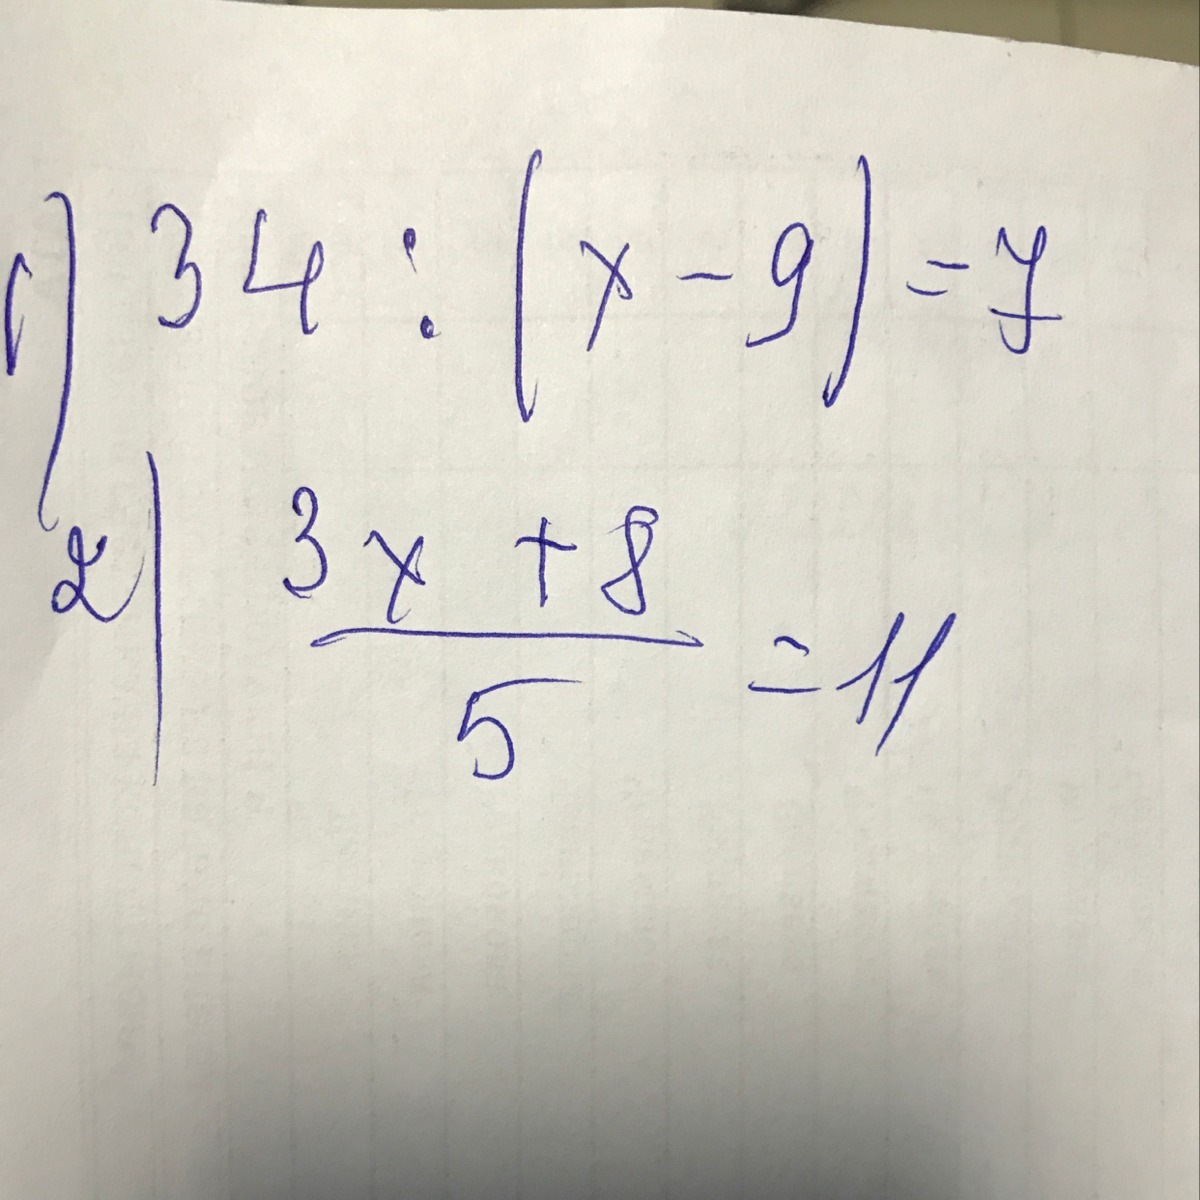 1) 34 : (x - 9) = 7
2) 3x + 8
5
= 11